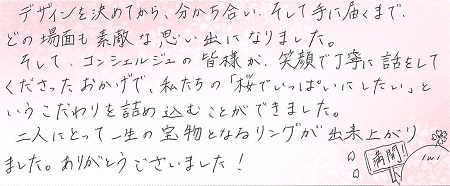 デザインを決めてから、分かち合い、そして手に届くまで、
どの場面も素敵な思い出になりました。
そして、コンシェルジュの皆様が、笑顔で丁寧に話をして
くださったおかげで、私たちの「桜でいっぱいにしたい」と
いうこだわりを詰め込むことができました。
二人にとって一生の宝物となるリングが出来上がり
ました。ありがとうございました！
満開！